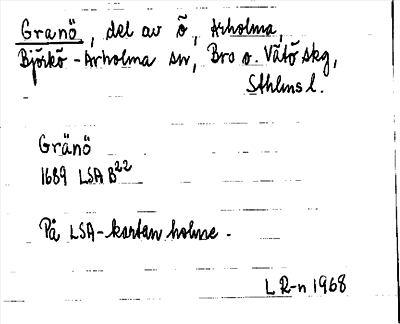 Granö, del av ö, Arholma,
Björkö-Arholma sn, Bro o. Vätö skg,
Sthlms l.
Gränö
1689 LSA B22
På LSA-kartan holme.
L R-n 1968